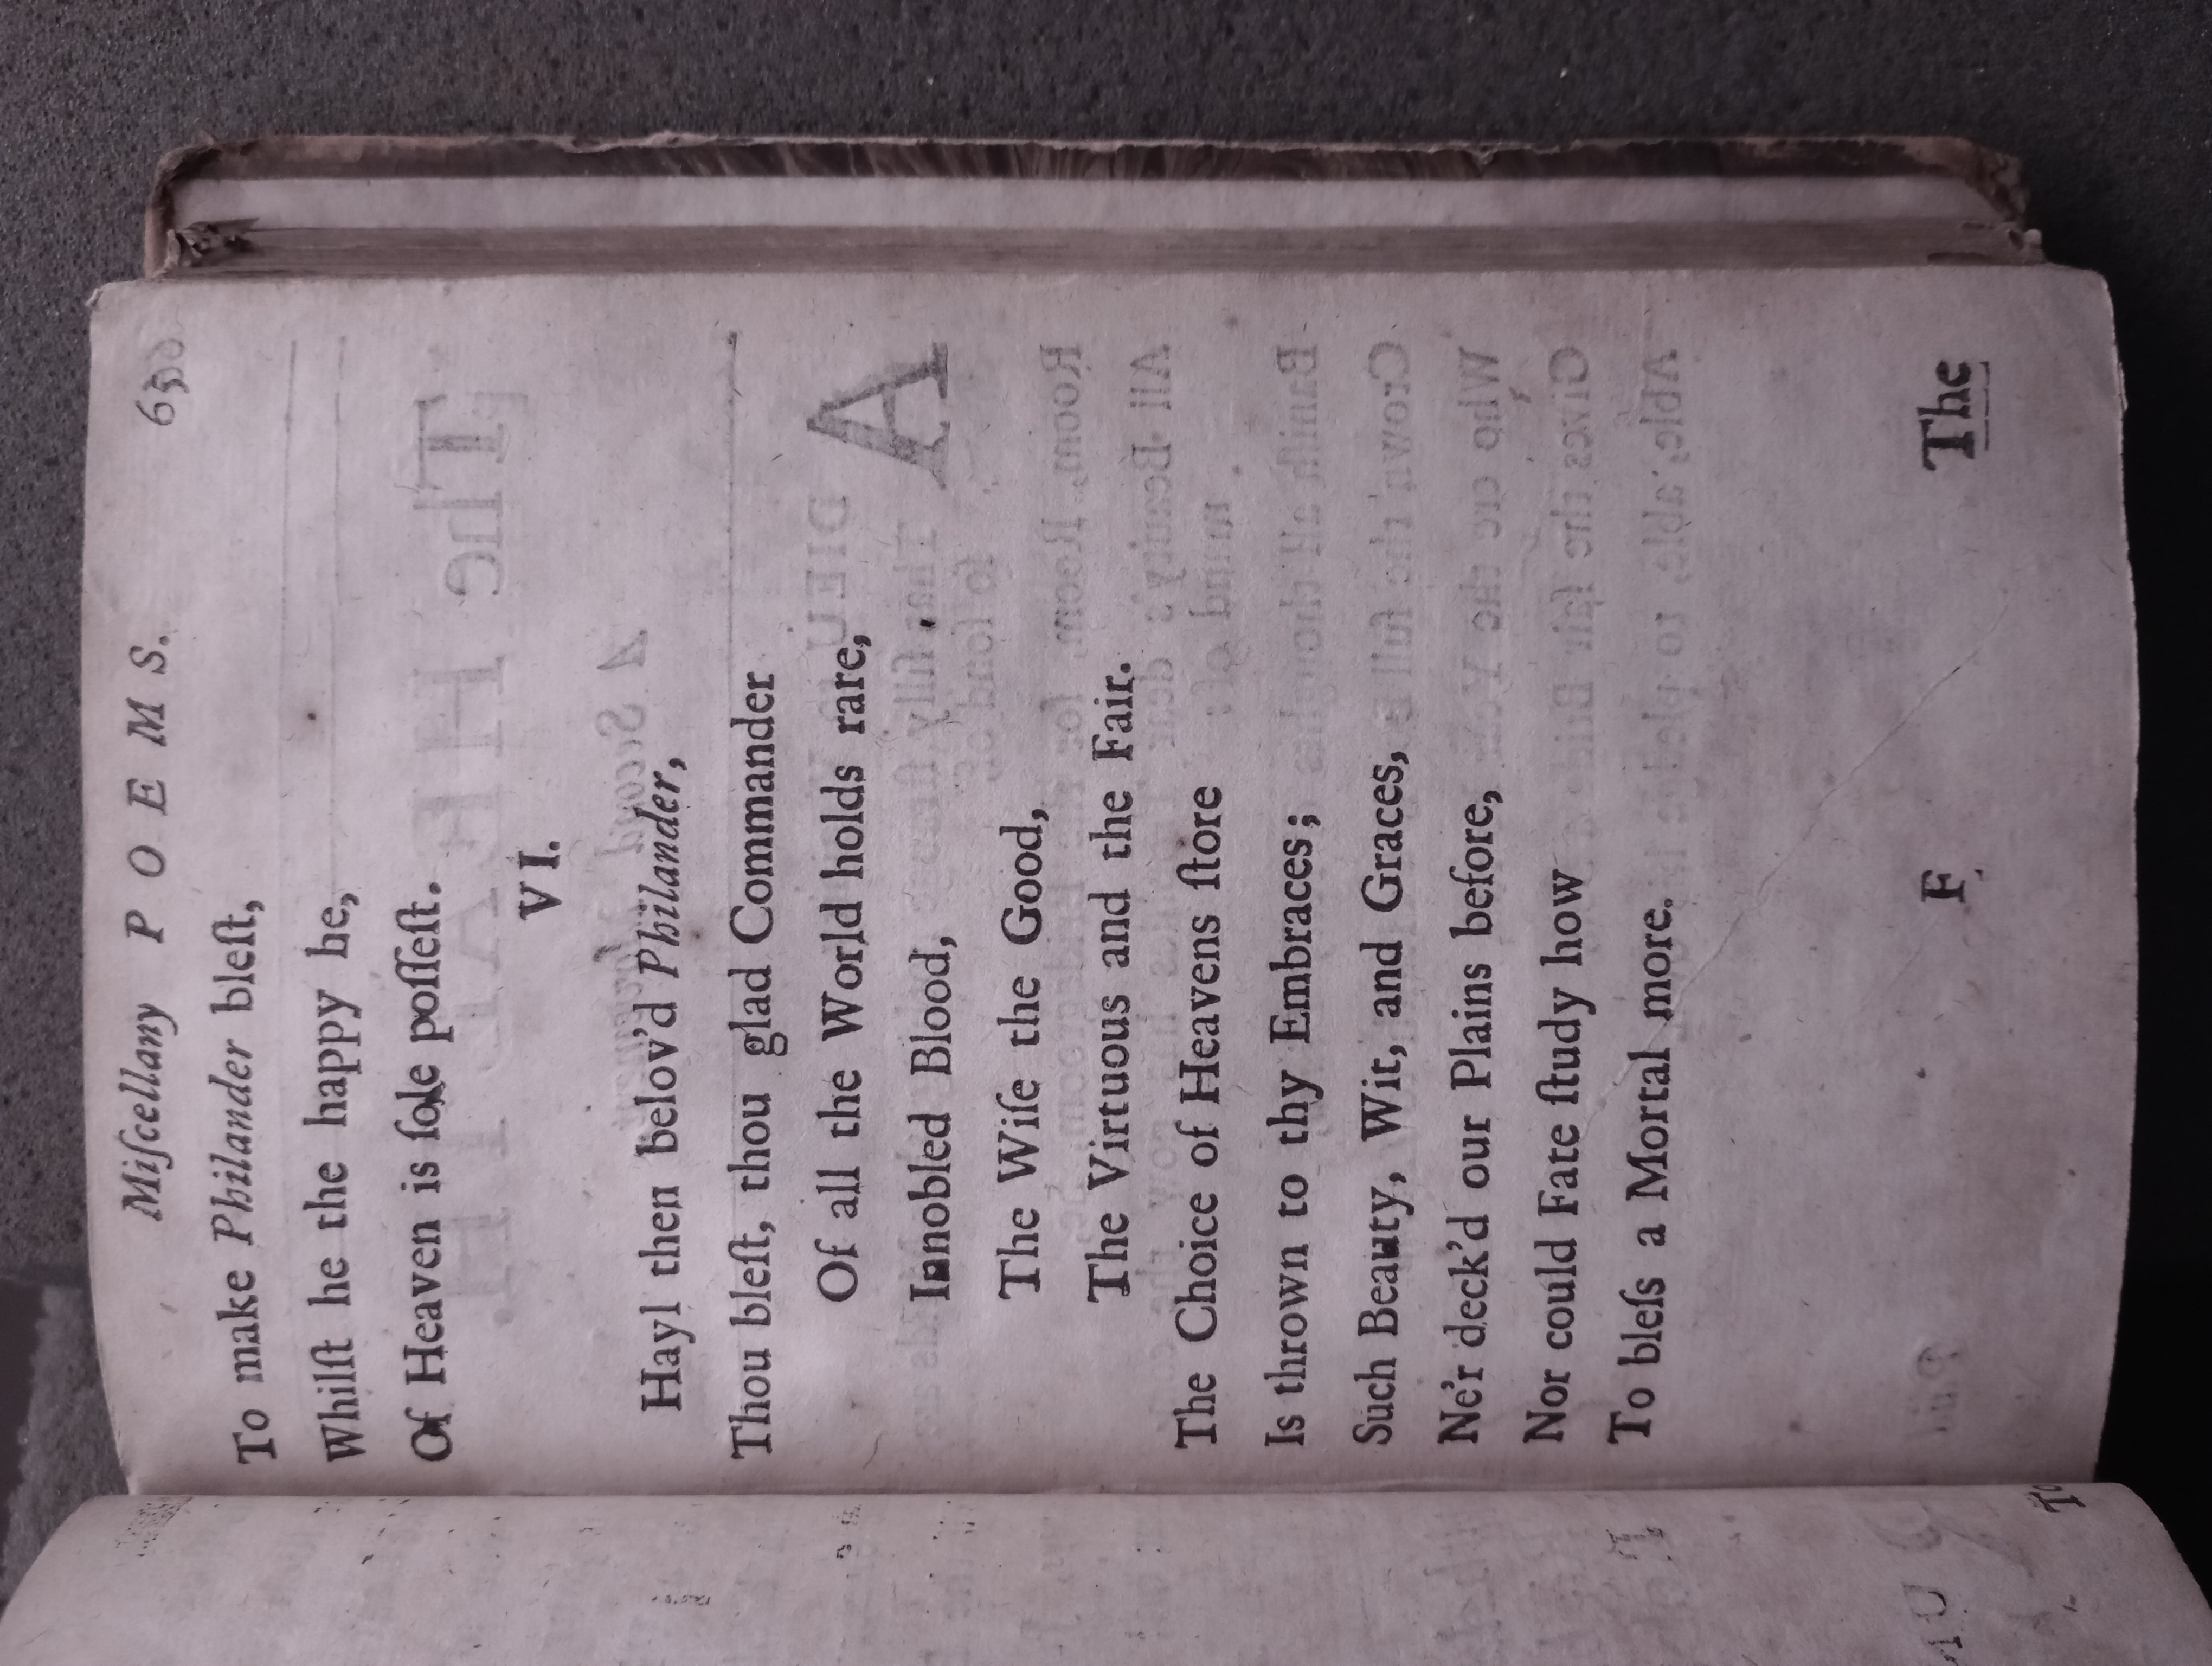 Miſcellany P O E M S. 65
To make Philander bleſt,
Whilſt he the happy he,
Of Heaven is ſole poſſeſt.
VI.
Hayl then belov'd Philander,
Thou bleſt, thou glad Commander
Of all the World holds rare,
Innobled Blood,
The Wiſe the Good,
The Virtuous and the Fair.
The Choice of Heavens ſtore
Is thrown to thy Embraces;
Such Beauty, Wit, and Graces,
Ne'r deck'd our Plains before,
Nor could Fate ſtudy how
To bleſs a Mortal more.
F The